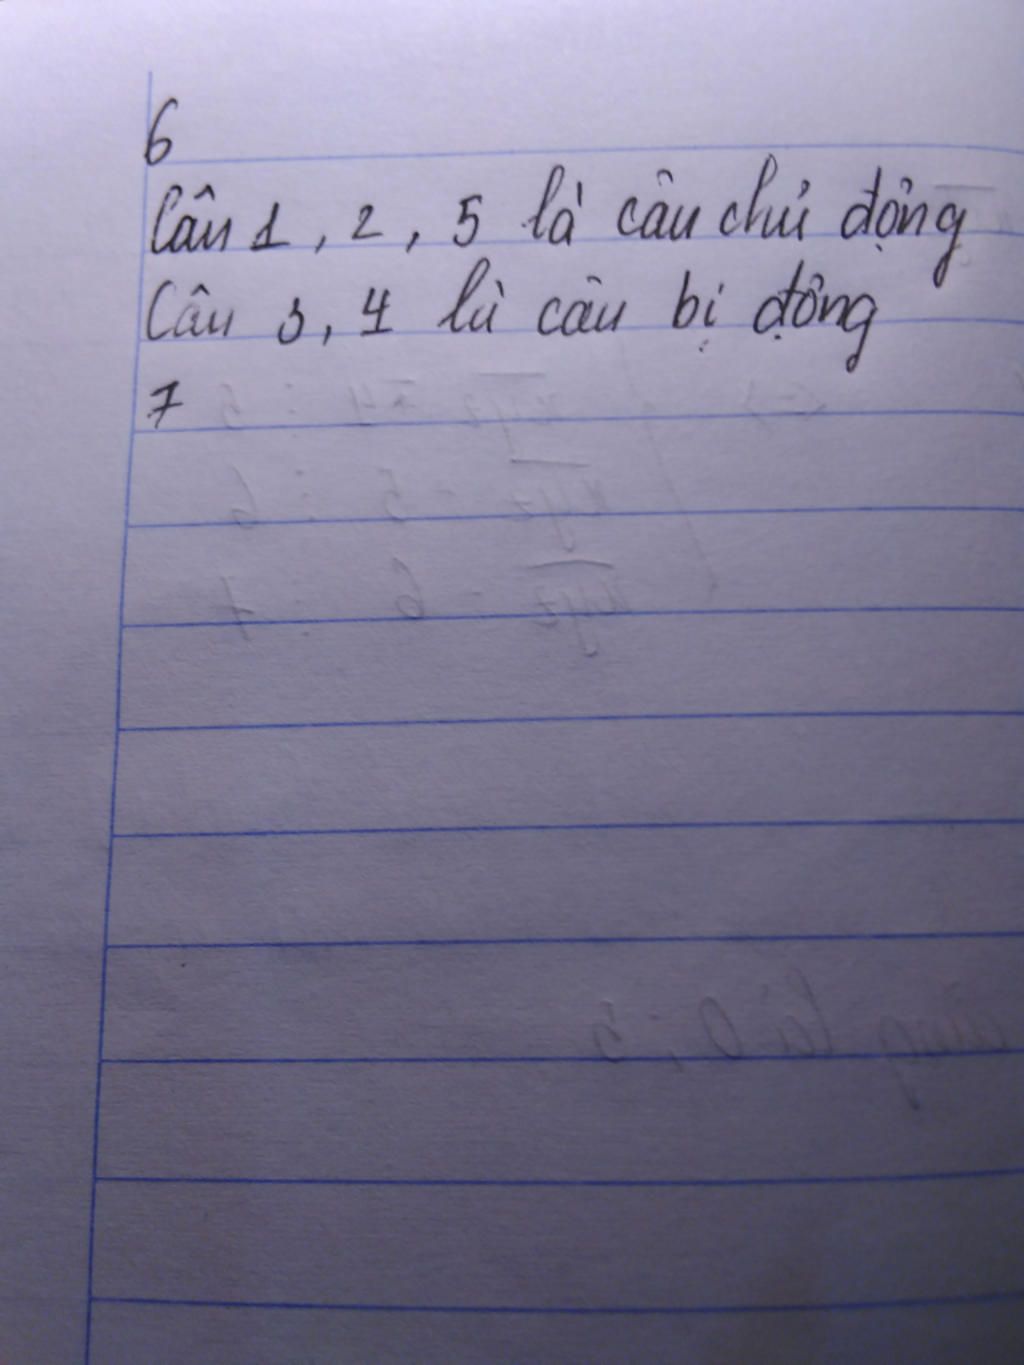 6
Câu 1, 2, 5 là câu chủ động
Câu 3, 4 là câu bị động
7